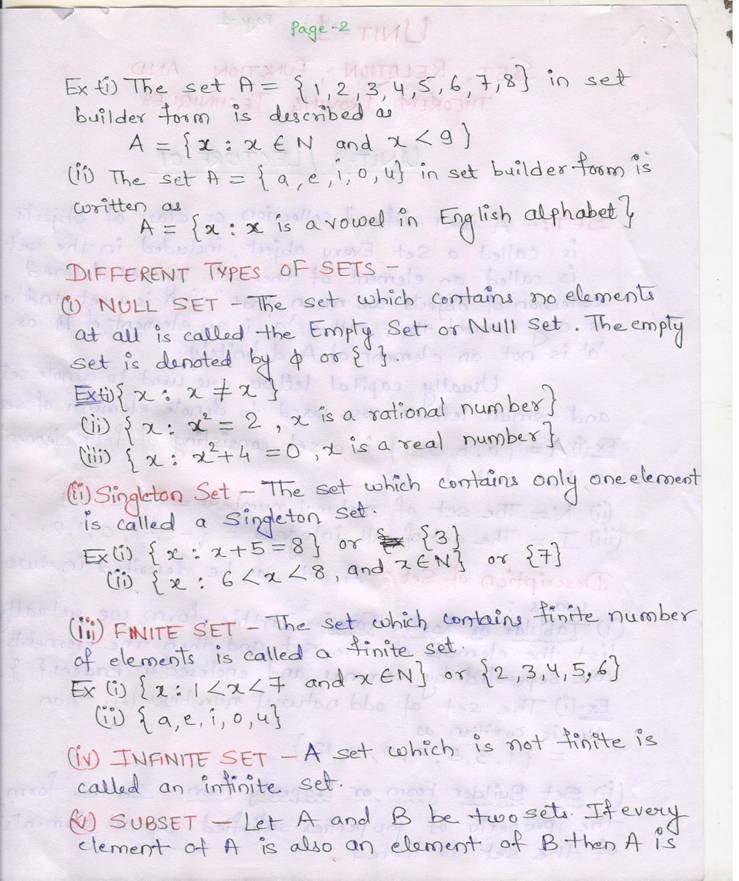 Page-2
Ex (i) The set A = {1,2,3,4,5,6,7,8} in set
builder form is described as
A = {x : x ∈ N and x < 9}
(ii) The set A = {a, e, i, o, u} in set builder form is
written as
A = {x : x is a vowel in English alphabet},
DIFFERENT TYPES OF SETS -
(i) NULL SET - The set which contains no elements
at all is called the Empty Set or Null Set. The empty
set is denoted by φ or { }.
Ex(i) {x : x ≠ x}
(ii) {x : x² = 2, x is a rational number}
(iii) {x : x² + 4 = 0, x is a real number}
(ii) Singleton Set - The set which contains only one element
is called a singleton set.
Ex (i) {x : x + 5 = 8} or {3}
(ii) {x : 6 < x < 8 and x ∈ N} or {7}
(iii) FINITE SET - The set which contains finite number
of elements is called a finite set.
Ex (i) {x : 1 < x < 7 and x ∈ N} or {2,3,4,5,6}
(ii) {a, e, i, o, u}
(iv) INFINITE SET - A set which is not finite is
called an infinite set.
(v) SUBSET - Let A and B be two sets. If every
element of A is also an element of B then A is